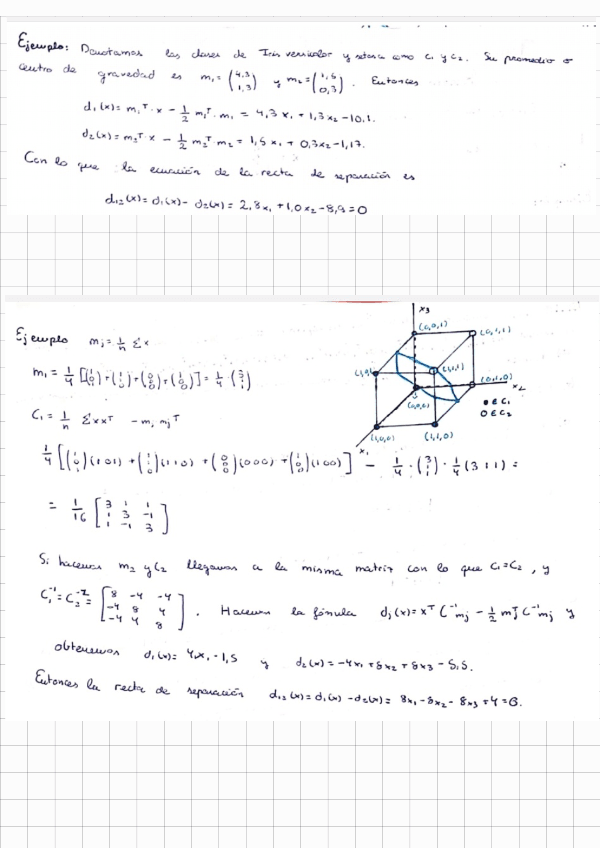 Ejemplo: Denotamos las clases de Iris versicolor y setosa como c₁ y c₂. Su promedio o
centro de gravedad es m₁ = (4,3 1,3) y m₂ = (1,5 0,3). Entonces
d₁(x) = m₁ᵀ · x - 1/2 m₁ᵀ · m₁ = 4,3 x₁ + 1,3 x₂ - 10,1.
d₂(x) = m₂ᵀ · x - 1/2 m₂ᵀ m₂ = 1,5 x₁ + 0,3 x₂ - 1,17.
Con lo que la ecuación de la recta de separación es
d₁₂(x) = d₁(x) - d₂(x) = 2,8 x₁ + 1,0 x₂ - 8,9 = 0
x₃
(0,0,1)
(0,1,1)
(1,0,
(1,1,1)
(0,1,0)
x₂
(0,0,0)
● ∈ C₁
○ ∈ C₂
(1,0,0)
(1,1,0)
x₁
Ejemplo mⱼ = 1/n Σx
m₁ = 1/4 [(1 0 1) + (1 1 0) + (0 0 0) + (1 0 0)] = 1/4 · (3 1 1)
C₁ = 1/n Σxxᵀ - mⱼ mⱼᵀ
1/4 [(1 0 1)(1 0 1) + (1 1 0)(1 1 0) + (0 0 0)(0 0 0) + (1 0 0)(1 0 0)] - 1/4 · (3 1 1) · 1/4 (3 1 1) =
= 1/16 [3 1 1 1 3 -1 1 -1 3]
Si hacemos m₂ y C₂ llegamos a la misma matriz con lo que C₁ = C₂, y
C₁⁻¹ = C₂⁻¹ = [8 -4 -4 -4 8 4 -4 4 8]. Hacemos la fómula dⱼ(x) = xᵀ C⁻¹mⱼ - 1/2 mⱼᵀ C⁻¹mⱼ y
obtenemos d₁(x) = 4x₁ - 1,5 y d₂(x) = -4x₁ + 8x₂ + 8x₃ - 5,5.
Entonces la recta de separación d₁₂(x) = d₁(x) - d₂(x) = 8x₁ - 8x₂ - 8x₃ + 4 = 0.